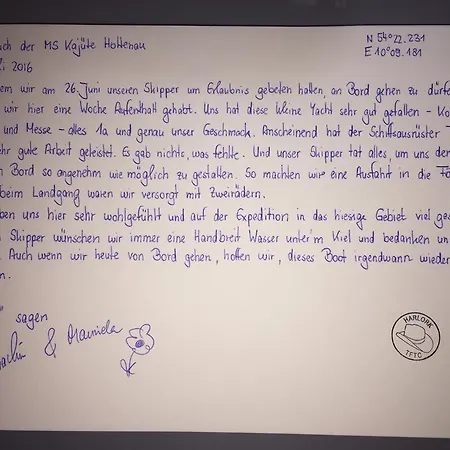 ch der MS Kajüte Holtenau
i 2016
N 54°22.231
E 10°09.181
em wir am 26. Juni unseren Skipper um Erlaubnis gebeten hatten, an Bord gehen zu dürfe
wir hier eine Woche Aufenthalt gehabt. Uns hat diese kleine Yacht sehr gut gefallen - Ko
und Messe - alles 1a und genau unser Geschmack. Anscheinend hat der Schiffsausrüster
hr gute Arbeit geleistet. Es gab nichts, was fehlte. Und unser Skipper tat alles, um uns de
n Bord so angenehm wie möglich zu gestalten. So machten wir eine Ausfahrt in die
beim Landgang waren wir versorgt mit Zweirädern.
ben uns hier sehr wohlgefühlt und auf der Expedition in das hiesige Gebiet viel ges
Skipper wünschen wir immer eine Handbreit Wasser unter'm Kiel und bedanken un
Auch wenn wir heute von Bord gehen, hoffen wir, dieses Boot irgendwann wieder
n.
" sagen
& Manuela
HARLORK
TFTC